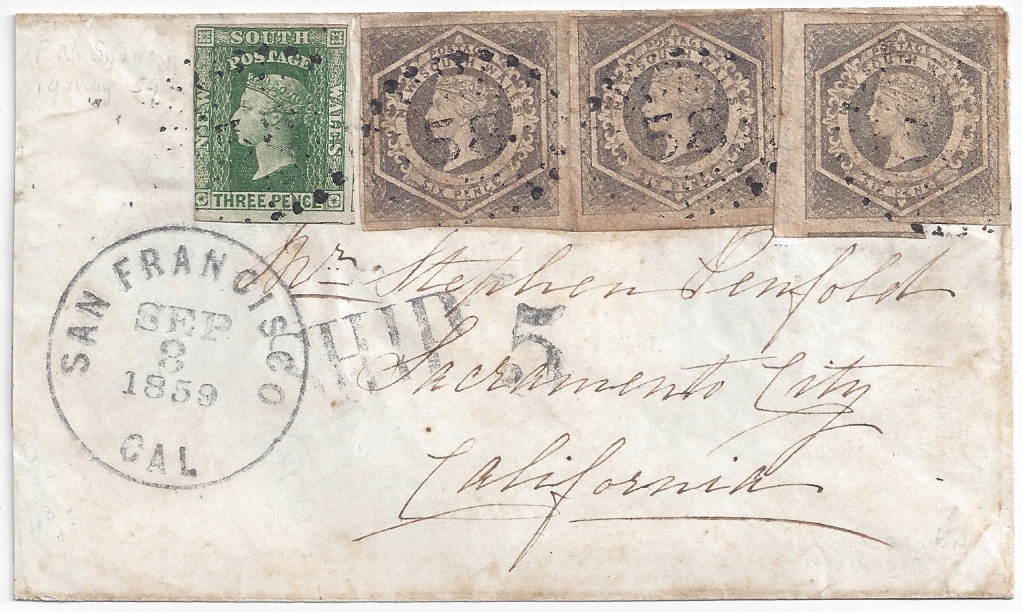 SOUTH
POSTAGE
NEW
WALES
THREE PENCE
POSTAGE
NEW SOUTH WALES
SIX PENCE
POSTAGE
NEW SOUTH WALES
SIX PENCE
POSTAGE
SOUTH WALES
SIX PENCE
58
58
Mr Stephen Penfold
Sacramento City
California
SAN FRANCISCO
SEP
8
1859
CAL
SHIP 5